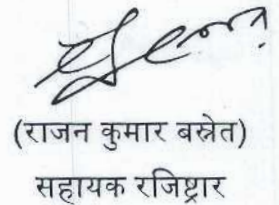 (राजन कुमार बस्नेत)
सहायक रजिष्ट्रार